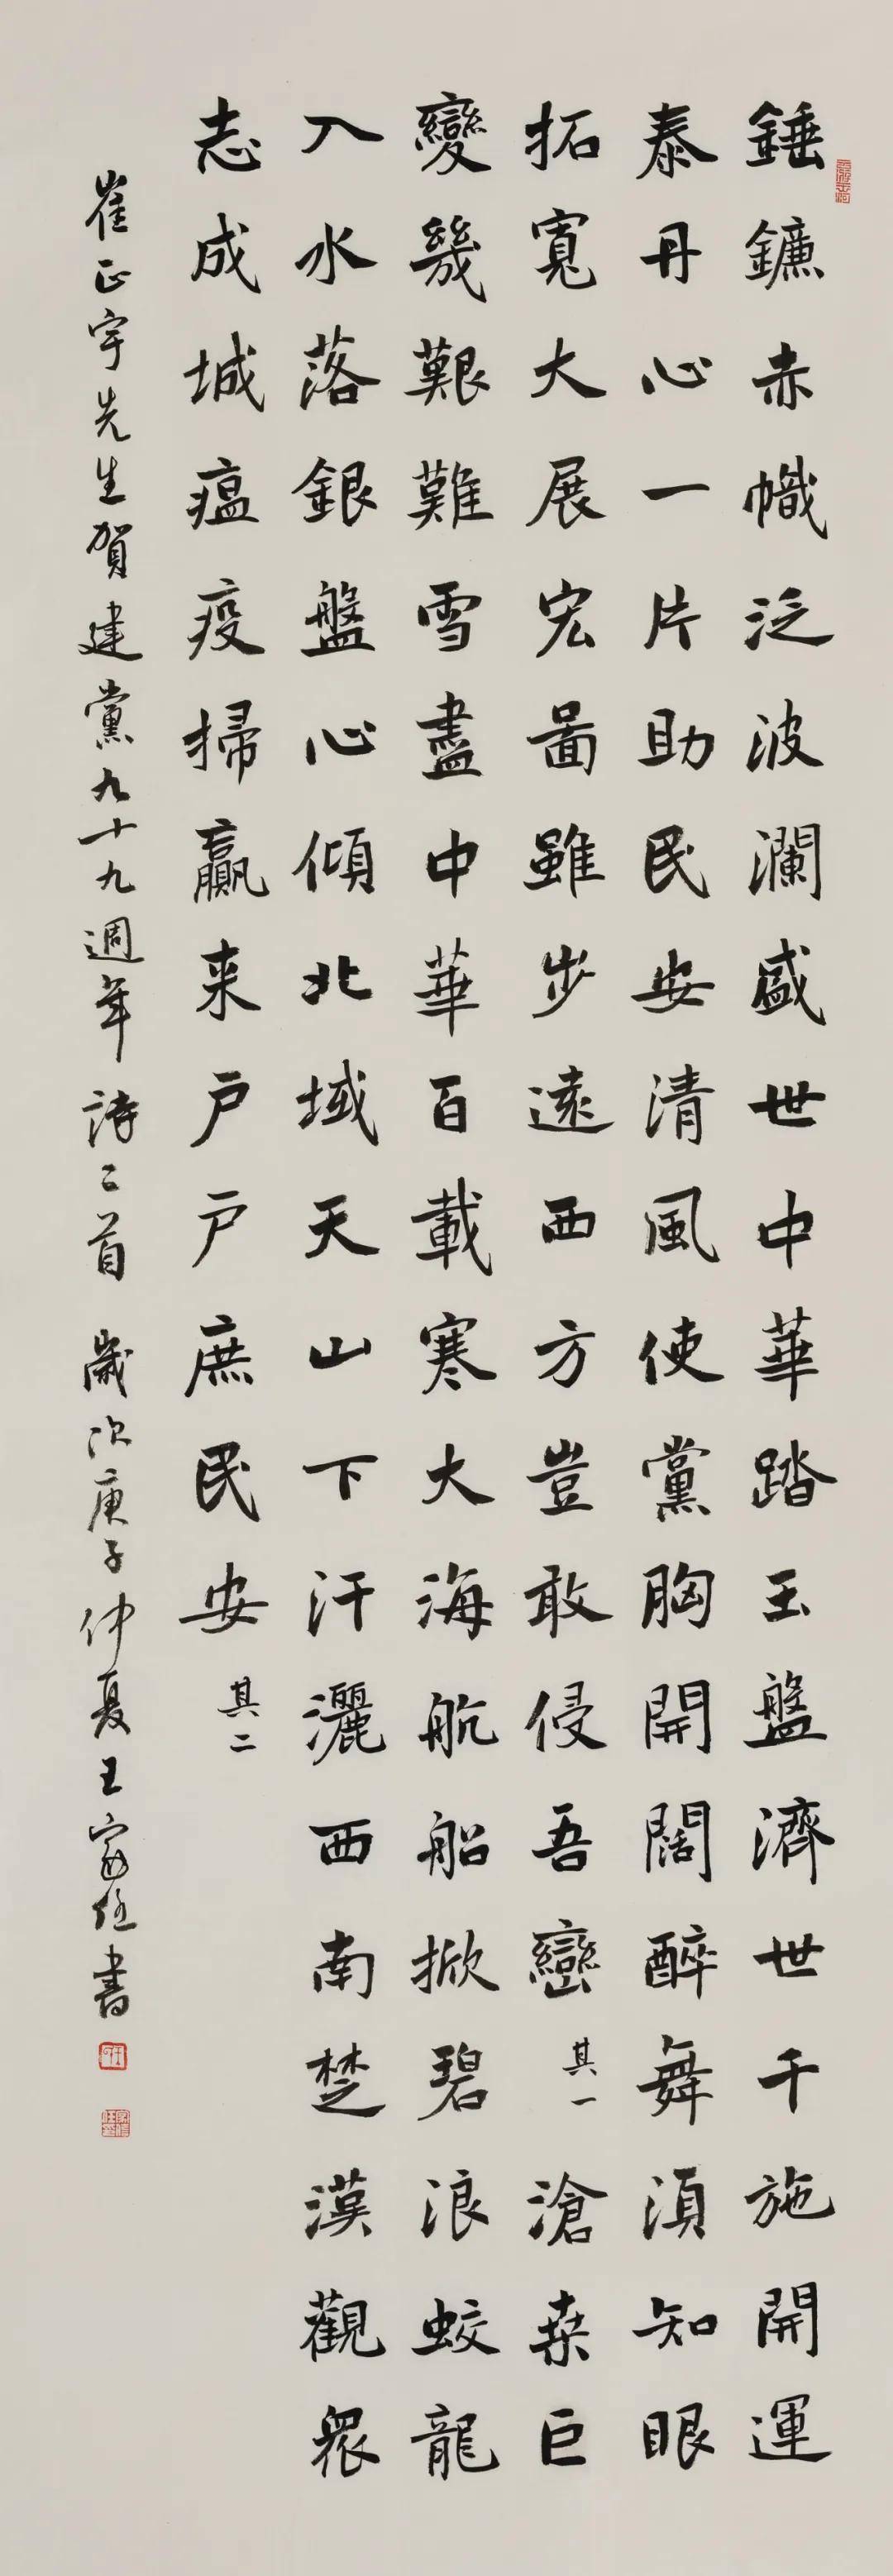 錘鐮赤幟泛波瀾盛世中華踏玉盤濟世千施開運
泰丹心一片助民安清風使黨胸開闊醉舞須知眼
拓寬大展宏圖雖步遠西方豈敢侵吾巒其一滄桑巨
變幾艱難雪盡中華百載寒大海航船掀碧浪蛟龍
入水落銀盤心傾北域天山下汗灑西南楚漢觀眾
志成城瘟疫掃贏来户户庶民安其二
崔正宇先生賀建黨九十九週年詩二首 歲次庚子仲夏王家任書